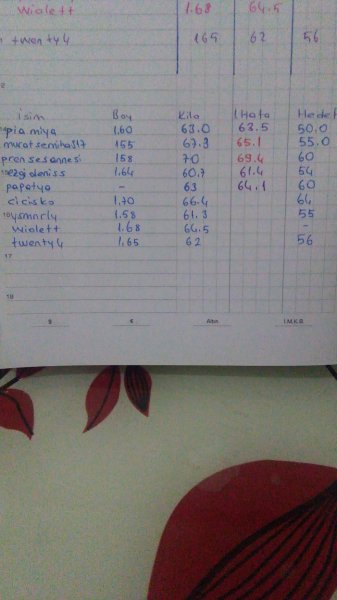 Wiolett 1.68 64.5
twenty4 165 62 56
isim Boy Kilo 1.Hafta Hedef
piamiya 1.60 63.0 63.5 50.0
muratsemiha317 155 67.3 65.1 55.0
prensesannesi 158 70 69.4 60
ezgideniss 1.64 60.7 61.4 54
papatya - 63 64.1 60
cicisko 1.70 66.4 64
ysmnrly 1.58 61.3 55
wiolett 1.68 64.5 -
twenty4 1.65 62 56
17
18
$ € Altın I.M.K.B